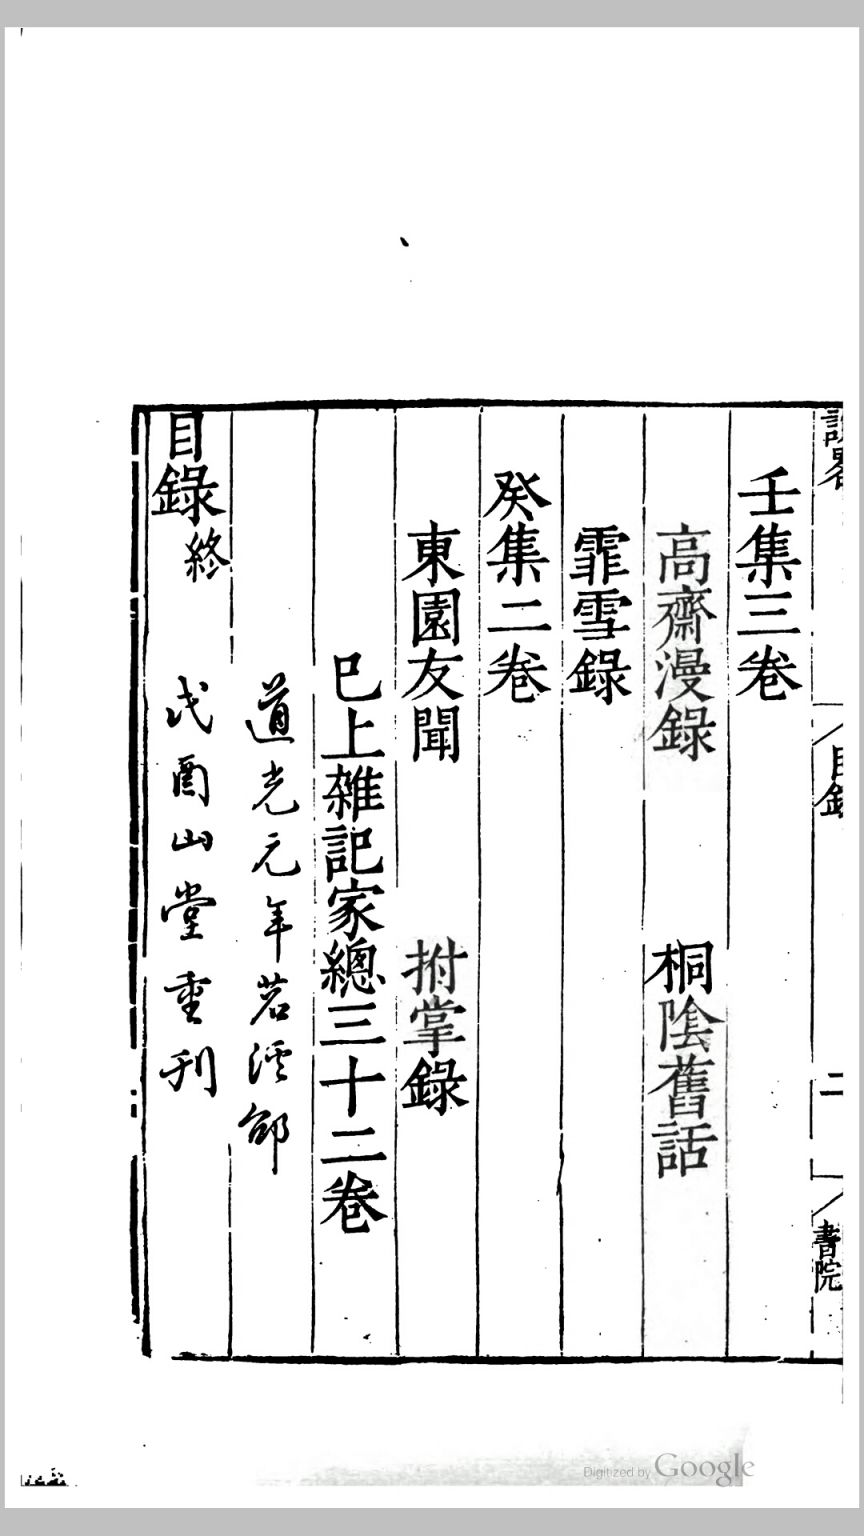 目錄
二
書院
壬集三卷
高齋漫錄 桐陰舊話
霏雪錄
癸集二卷
東園友聞 拊掌錄
已上雜記家總三十二卷
道光元年苕溪邵
氏酉山堂重刊
目錄終
Digitized by Google